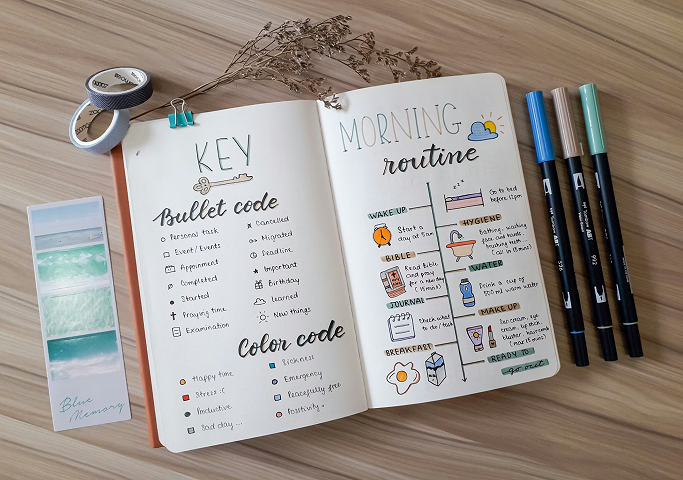 KEY
Bullet code
Personal task
Event / Events
Appoinment
Completed
Started
Praying time
Examination
Cancelled
Migrated
Deadline
Important
Birthday
Learned
New things
Color code
Happy time
Stress :(
Productive
Sad day ...
Sickness
Emergency
Peacefully free
Positivity
MORNING
routine
zzz
Go to bed
before 12pm
WAKE UP
Start a
day at 5am
HYGIENE
Bathing, washing
face and hands,
brushing teeth...
(all in 15 mins)
BIBLE
Read Bible
and pray
for a new day
(15 mins)
WATER
Drink a cup of
500 ml warm water
JOURNAL
Check what
to do / task
MAKE UP
Sun cream, eye
cream, lip stick,
blusher, haircomb
(max 15 mins)
BREAKFAST
READY TO
go out
Blue
Memory